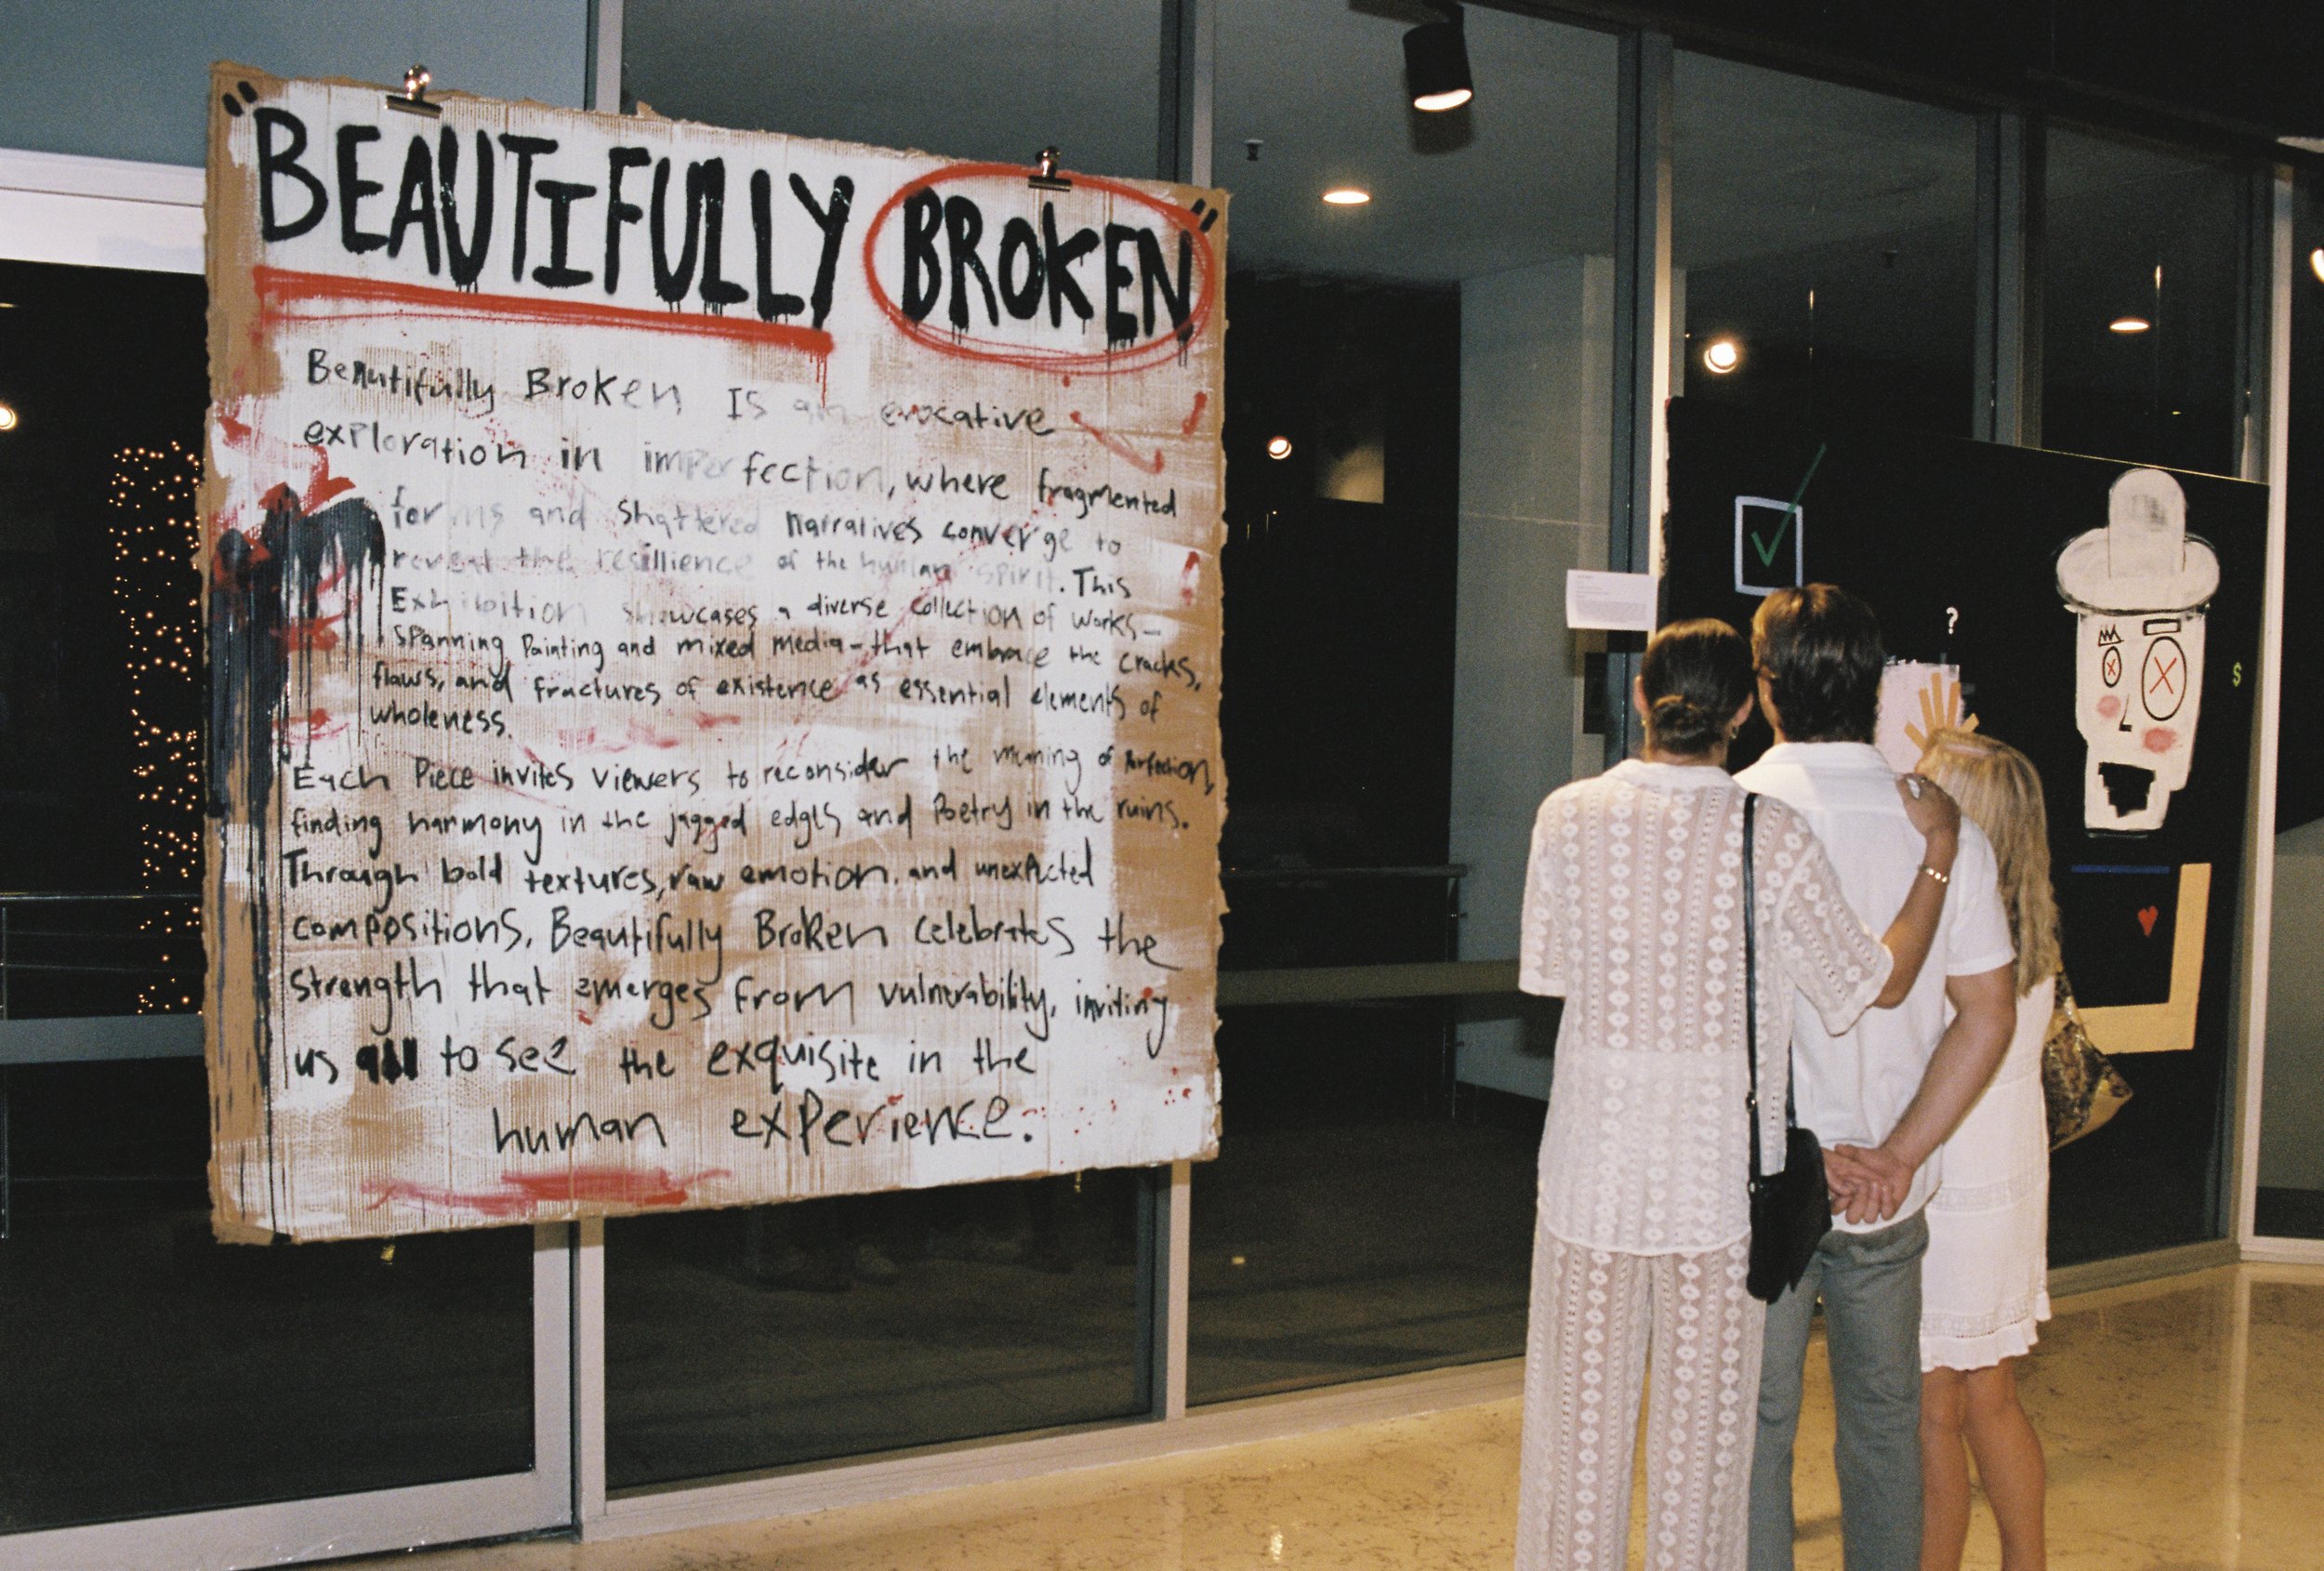 "BEAUTIFULLY BROKEN"
Beautifully Broken Is an evocative
exploration in imperfection, where fragmented
forms and shattered narratives converge to
reveal the resillience of the human spirit. This
Exhibition showcases a diverse collection of works—
spanning Painting and mixed media—that embrace the cracks,
flaws, and fractures of existence as essential elements of
wholeness.
Each Piece invites viewers to reconsider the meaning of Perfection,
finding harmony in the jagged edges and Poetry in the ruins.
Through bold textures, raw emotion, and unexpected
compositions, Beautifully Broken celebrates the
strength that emerges from vulnerability, inviting
us all to see the exquisite in the
human experience.
?
$